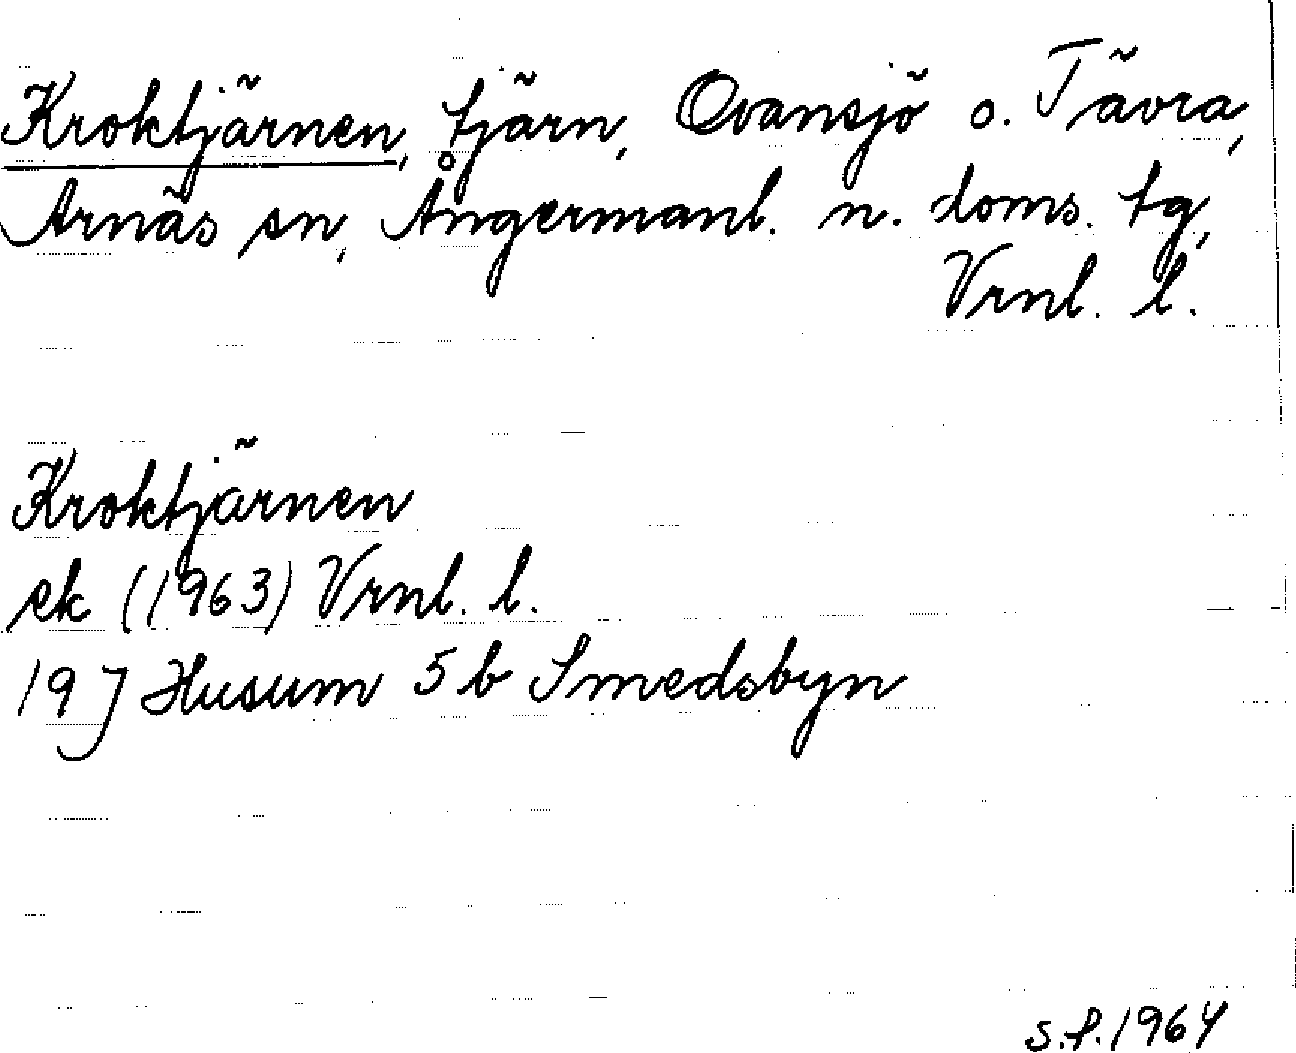 Kroktjärnen, tjärn, Ovansjö o. Tävra,
Arnäs sn, Ångermanl. n. doms. tg,
Vrnl. l.
Kroktjärnen
ek (1963) Vrnl. l.
19 J Husum 5 b Smedsbyn
S.f. 1964